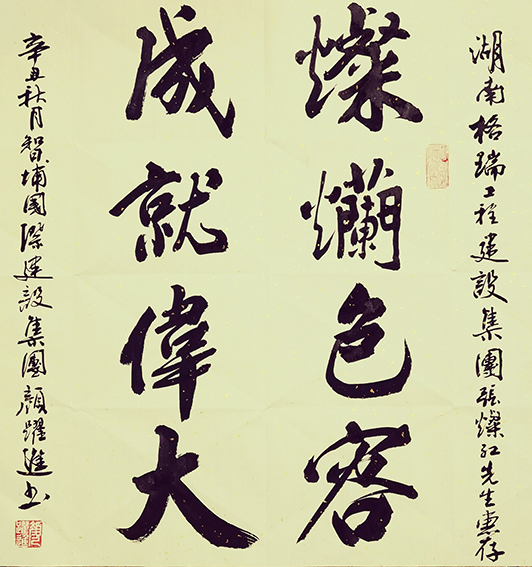 湖南格瑞工程建設集團張燦紅先生惠存
燦爛色容
成就偉大
辛丑秋月智埔國際建設集團顏躍進书